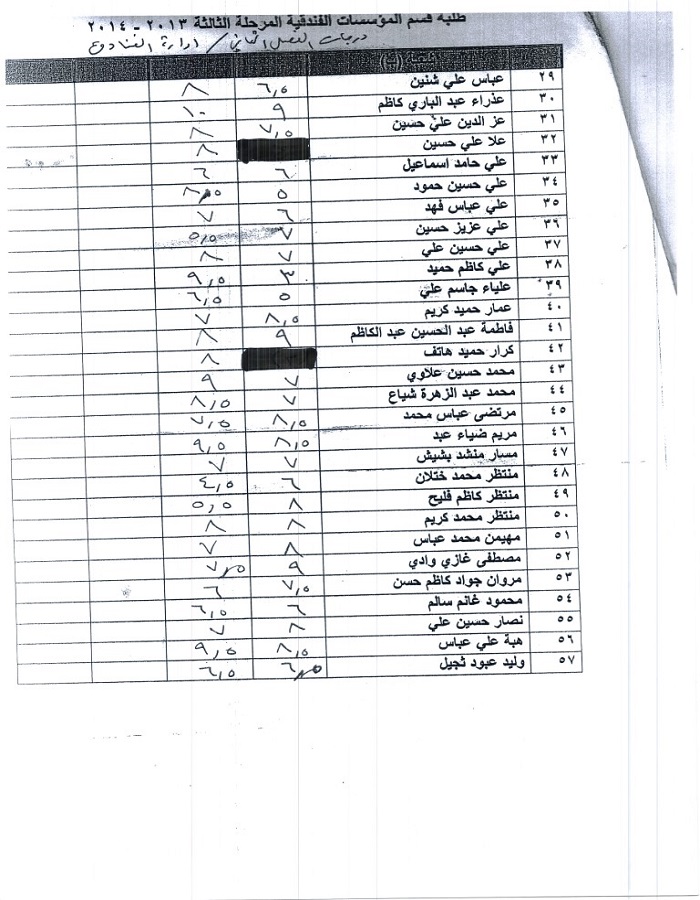 طلبه قسم المؤسسات الفندقية المرحلة الثالثة ٢٠١٣ - ٢٠١٤
درجات الفصل الثاني / ادارة الفنادق
٢٩ عباس علي شنين ٦,٥ ٨
٣٠ عذراء عبد الباري كاظم ٩ ١٠
٣١ عز الدين علي حسين ٧,٥ ٨
٣٢ علا علي حسين ٨
٣٣ علي حامد اسماعيل ٦ ٦
٣٤ علي حسين حمود ٥ ٨,٥
٣٥ علي عباس فهد ٦ ٧
٣٦ علي عزيز حسين ٧ ٥,٥
٣٧ علي حسين علي ٧ ٨
٣٨ علي كاظم حميد ٣ ٩,٥
٣٩ علياء جاسم علي ٥ ٦,٥
٤٠ عمار حميد كريم ٨,٥ ٧
٤١ فاطمة عبد الحسين عبد الكاظم ٩ ٨
٤٢ كرار حميد هاتف ٨
٤٣ محمد حسين علاوي ٧ ٩
٤٤ محمد عبد الزهرة شياع ٧ ٨,٥
٤٥ مرتضى عباس محمد ٨,٥ ٧,٥
٤٦ مريم ضياء عبد ٨,٥ ٩,٥
٤٧ مسار منشد بشيش ٧ ٧
٤٨ منتظر محمد ختلان ٦ ٤,٥
٤٩ منتظر كاظم فليح ٨ ٥,٥
٥٠ منتظر محمد كريم ٨ ٨
٥١ مهيمن محمد عباس ٨ ٧
٥٢ مصطفى غازي وادي ٩ ٧,٥
٥٣ مروان جواد كاظم حسن ٧,٥ ٦
٥٤ محمود غانم سالم ٦ ٦,٥
٥٥ نصار حسين علي ٨ ٧
٥٦ هبة علي عباس ٨,٥ ٩,٥
٥٧ وليد عبود ثجيل ٦,٥ ٦,٥